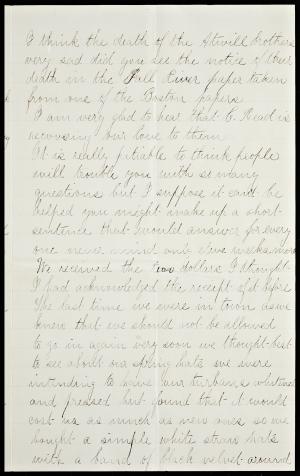 I think the death of the Atwill brothers
very sad did you see the notice of their
death in the Fall River paper taken
from one of the Boston papers
I am very glad to hear that C. Read is
recovering our love to them
It is really pitiable to think people
will trouble you with so many
questions but I suppose it cant be
helped you might make up a short
sentence that would answer for every
one never mind only five weeks more
We received the two dollars I thought
I had acknowledged the receipt of it before
The last time we were in town as we
knew that we should not be allowed
to go in again very soon we thought best
to see about our spring hats we were
intending to have our turbans whitened
and pressed but found that it would
cost us as much as new ones so we
bought a simple white straw hats
with a band of black velvet around